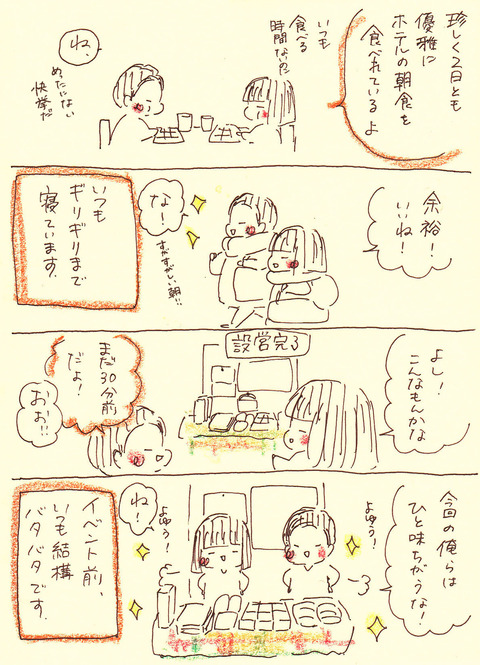 珍しく2日とも
優雅に
ホテルの朝食を
食べれているよ
いつも
食べる
時間ないのに
ね、
めったにない
快挙だ
余裕!
いいね!
な!
すがすがしい朝!!
いつも
ギリギリまで
寝ています。
よし!
こんなもんかな
設営完了
まだ30分前
だよ!
おぉ!!
今回の俺らは
ひと味ちがうな!
よゆう!
よゆう!
ね!
イベント前、
いつも結構
バタバタです。